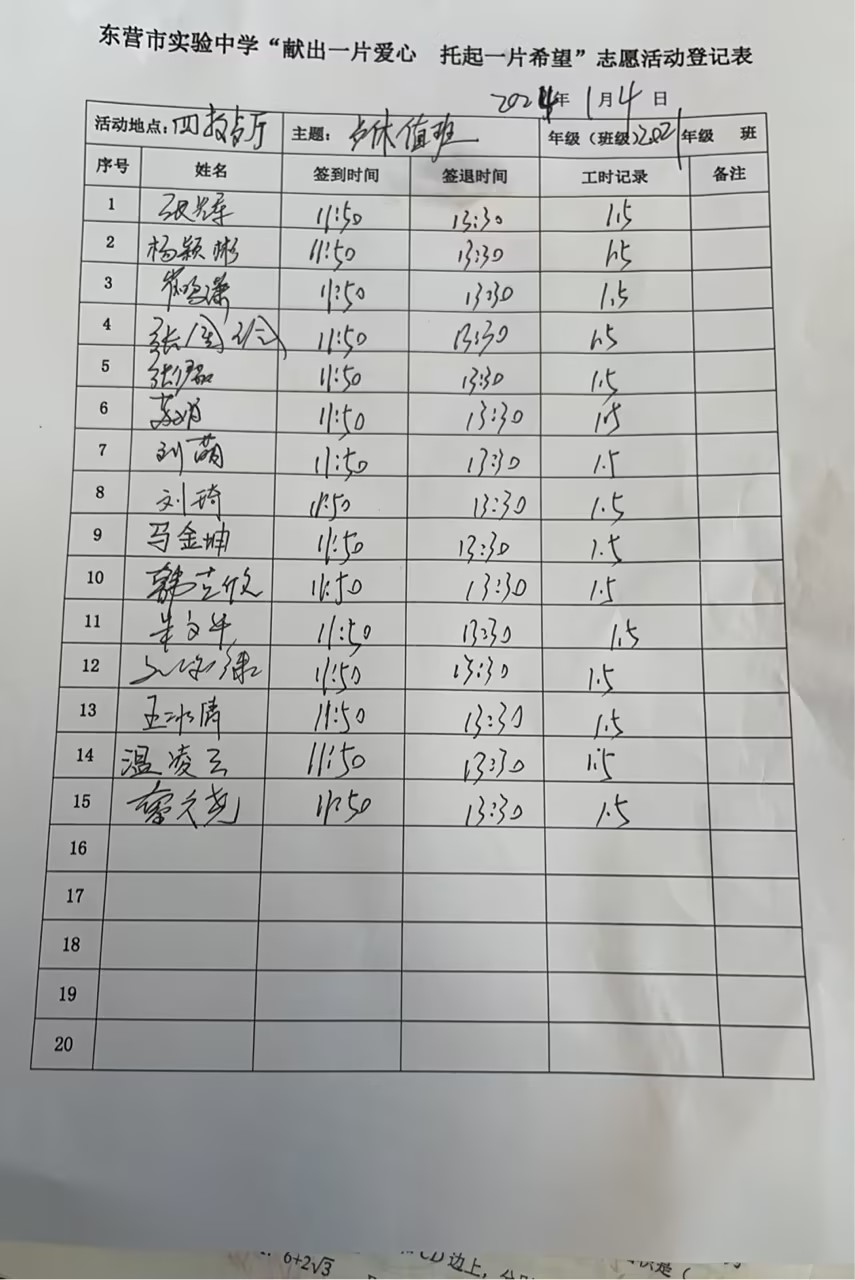 东营市实验中学“献出一片爱心 托起一片希望”志愿活动登记表
2024年1月4日
活动地点：四教 厅 主题： 休值班 年级（班级）2021年级 班
序号 姓名 签到时间 签退时间 工时记录 备注
1 11:50 13:30 1.5
2 杨颖彬 11:50 13:30 1.5
3 11:50 13:30 1.5
4 张 11:50 13:30 1.5
5 张 11:50 13:30 1.5
6 11:50 13:30 1.5
7 刘萌 11:50 13:30 1.5
8 刘琦 11:50 13:30 1.5
9 马金坤 11:50 13:30 1.5
10 韩 欣 11:50 13:30 1.5
11 文 11:50 13:30 1.5
12 11:50 13:30 1.5
13 王冰清 11:50 13:30 1.5
14 温凌云 11:50 13:30 1.5
15 11:50 13:30 1.5
16
17
18
19
20
6+2√3 CD边上，